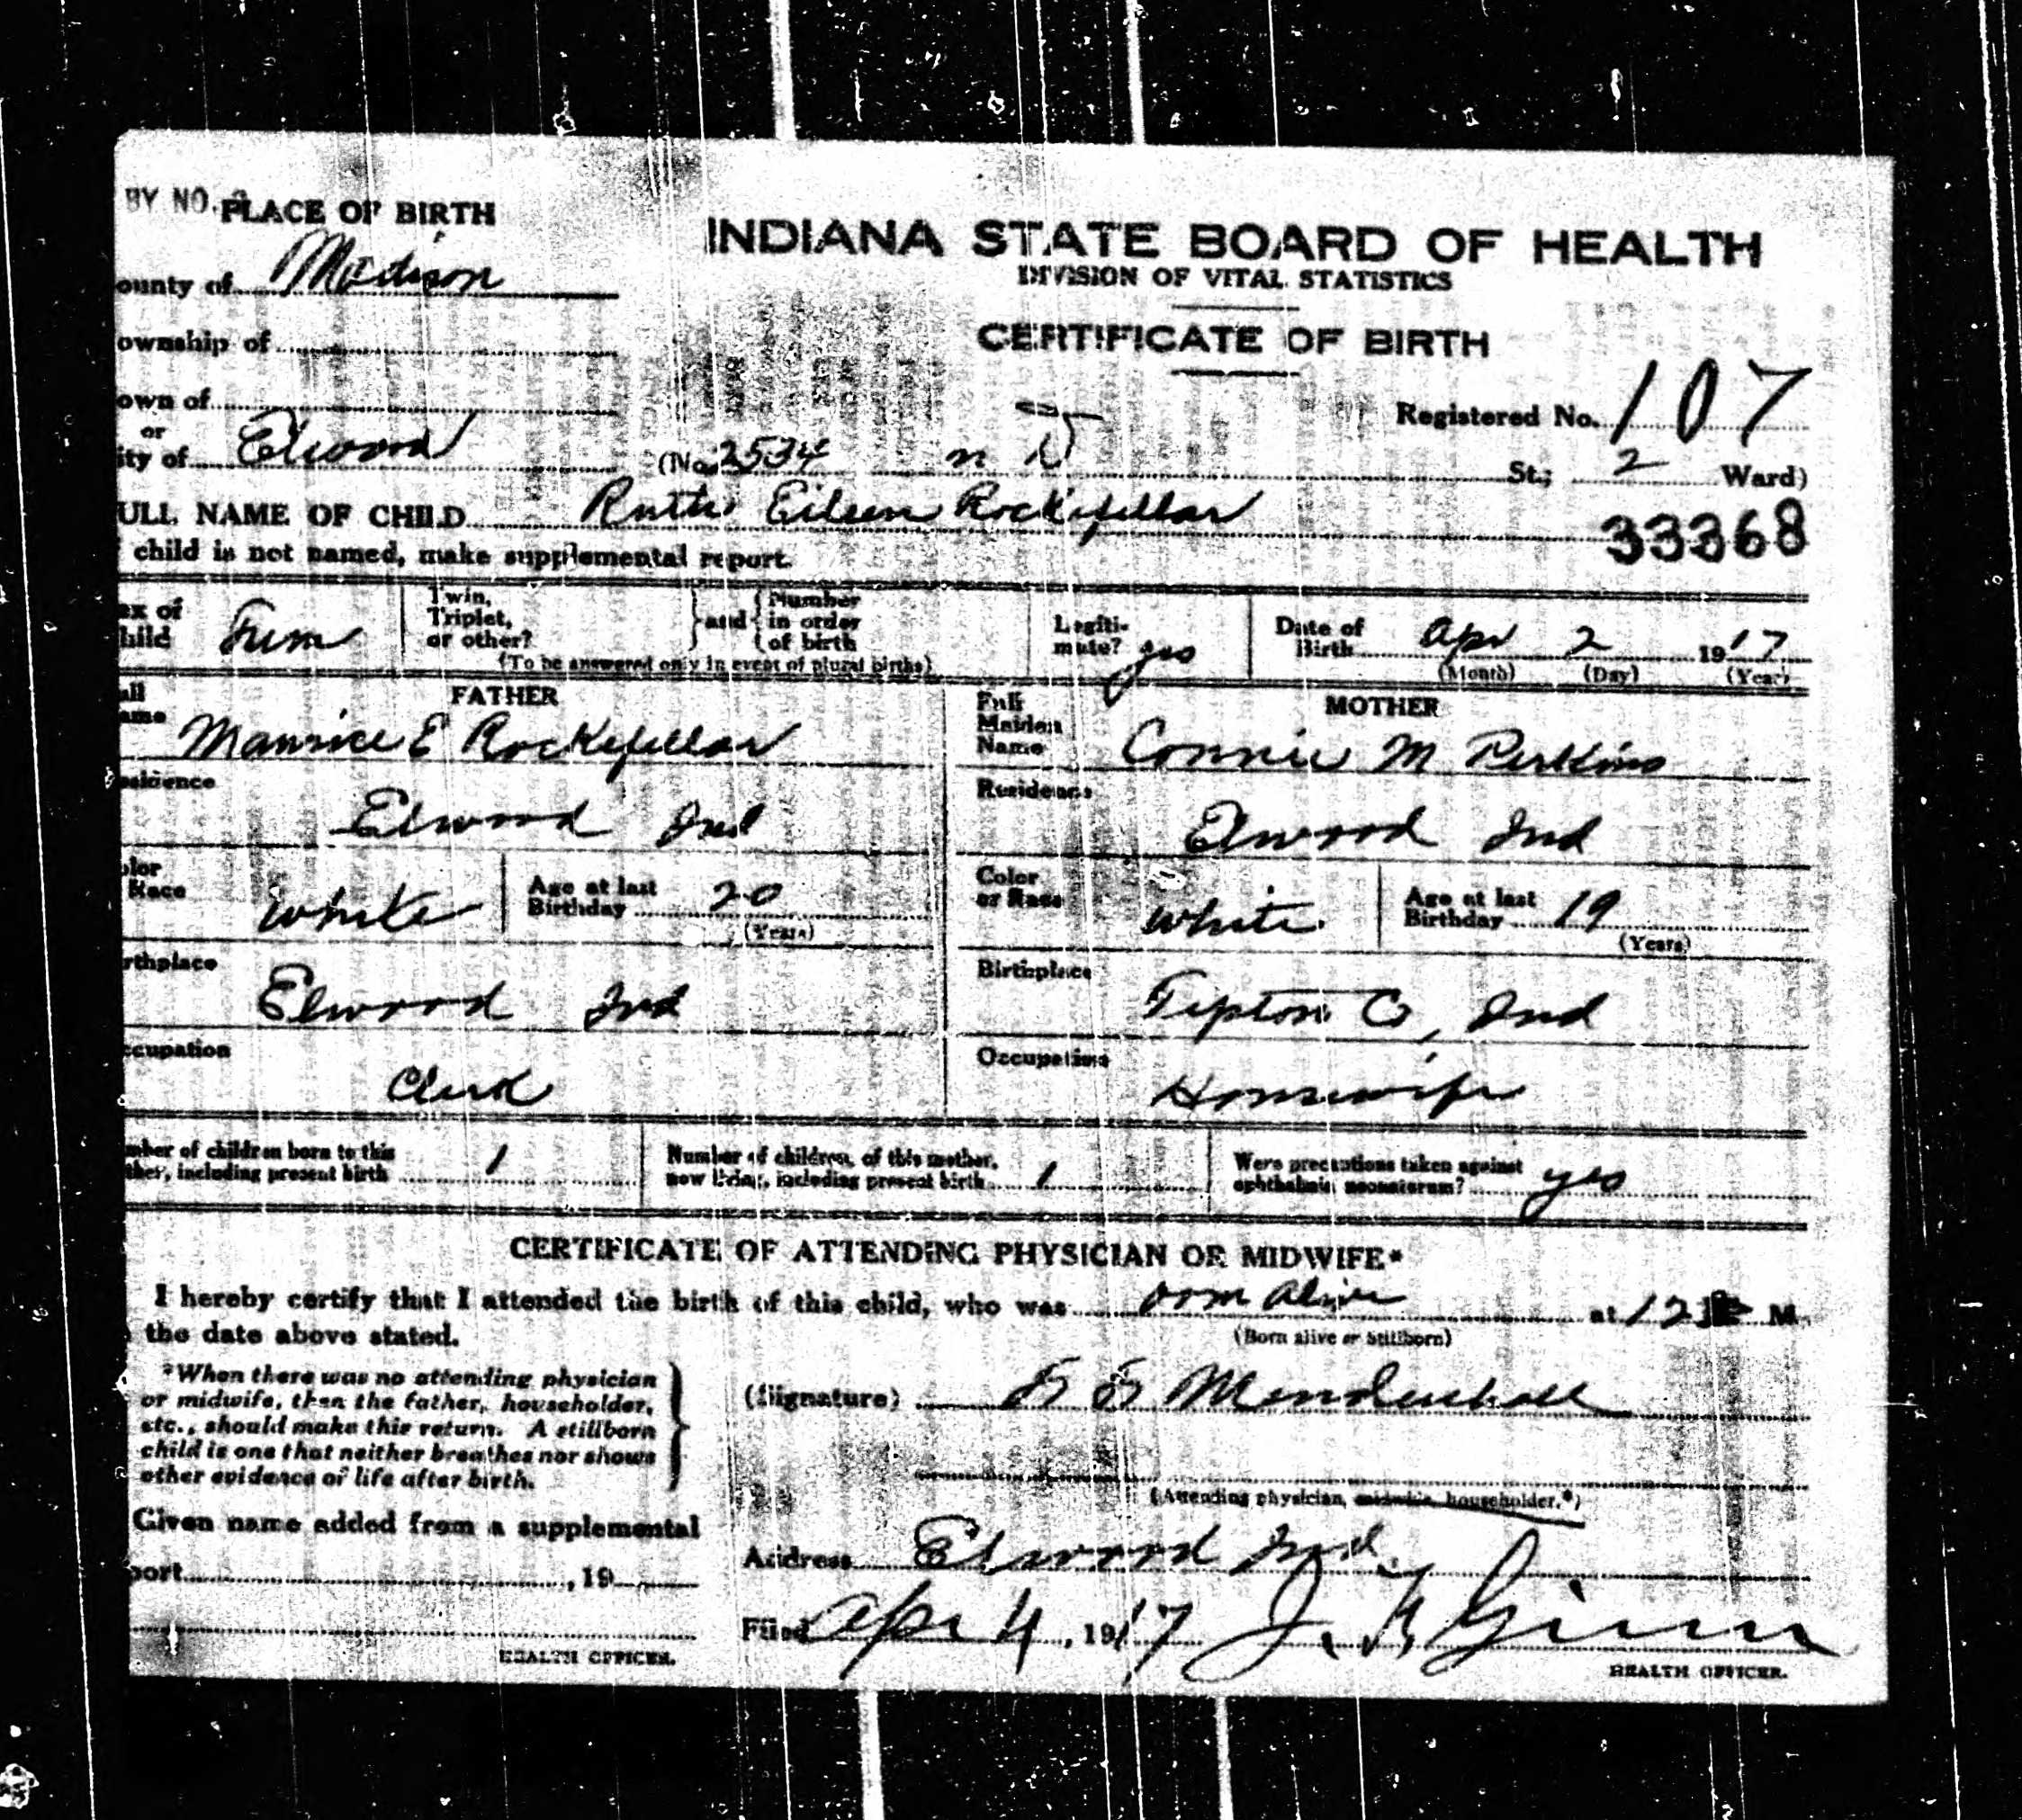 BY NO.
PLACE OF BIRTH
ounty of Madison
ownship of
own of
or
ity of Elwood
INDIANA STATE BOARD OF HEALTH
DIVISION OF VITAL STATISTICS
CERTIFICATE OF BIRTH
Registered No. 107
(No. 2534 n D St.; 2 Ward)
ULL NAME OF CHILD Ruth Eileen Rockefellar
33368
child is not named, make supplemental report.
ex of hild Fem
Twin, Triplet, or other?
and
Number in order of birth
(To be answered only in event of plural births)
Legiti-mate? yes
Date of Birth Apr 2 1917
(Month) (Day) (Year)
FATHER
ull ame Maurice E Rockefellar
esidence Elwood Ind
olor Race white
Age at last Birthday 20
(Years)
rthplace Elwood Ind
ccupation Clerk
MOTHER
Full Maiden Name Connie M Perkins
Residence Elwood Ind
Color or Race white
Age at last Birthday 19
(Years)
Birthplace Tipton Co, Ind
Occupation Housewife
mber of children born to this
ther, including present birth 1
Number of children, of this mother,
now living, including present birth 1
Were precautions taken against
ophthalmia neonatorum? yes
CERTIFICATE OF ATTENDING PHYSICIAN OR MIDWIFE*
I hereby certify that I attended the birth of this child, who was born alive at 12 M.
the date above stated.
(Born alive or Stillborn)
*When there was no attending physician
or midwife, then the father, householder,
etc., should make this return. A stillborn
child is one that neither breathes nor shows
other evidence of life after birth.
(Signature) Mendenhall
(Attending physician, midwife, householder.*)
Given name added from a supplemental
port , 19
HEALTH OFFICER.
Address Elwood Ind.
Filed Apr 4, 1917 J. Ginn
HEALTH OFFICER.